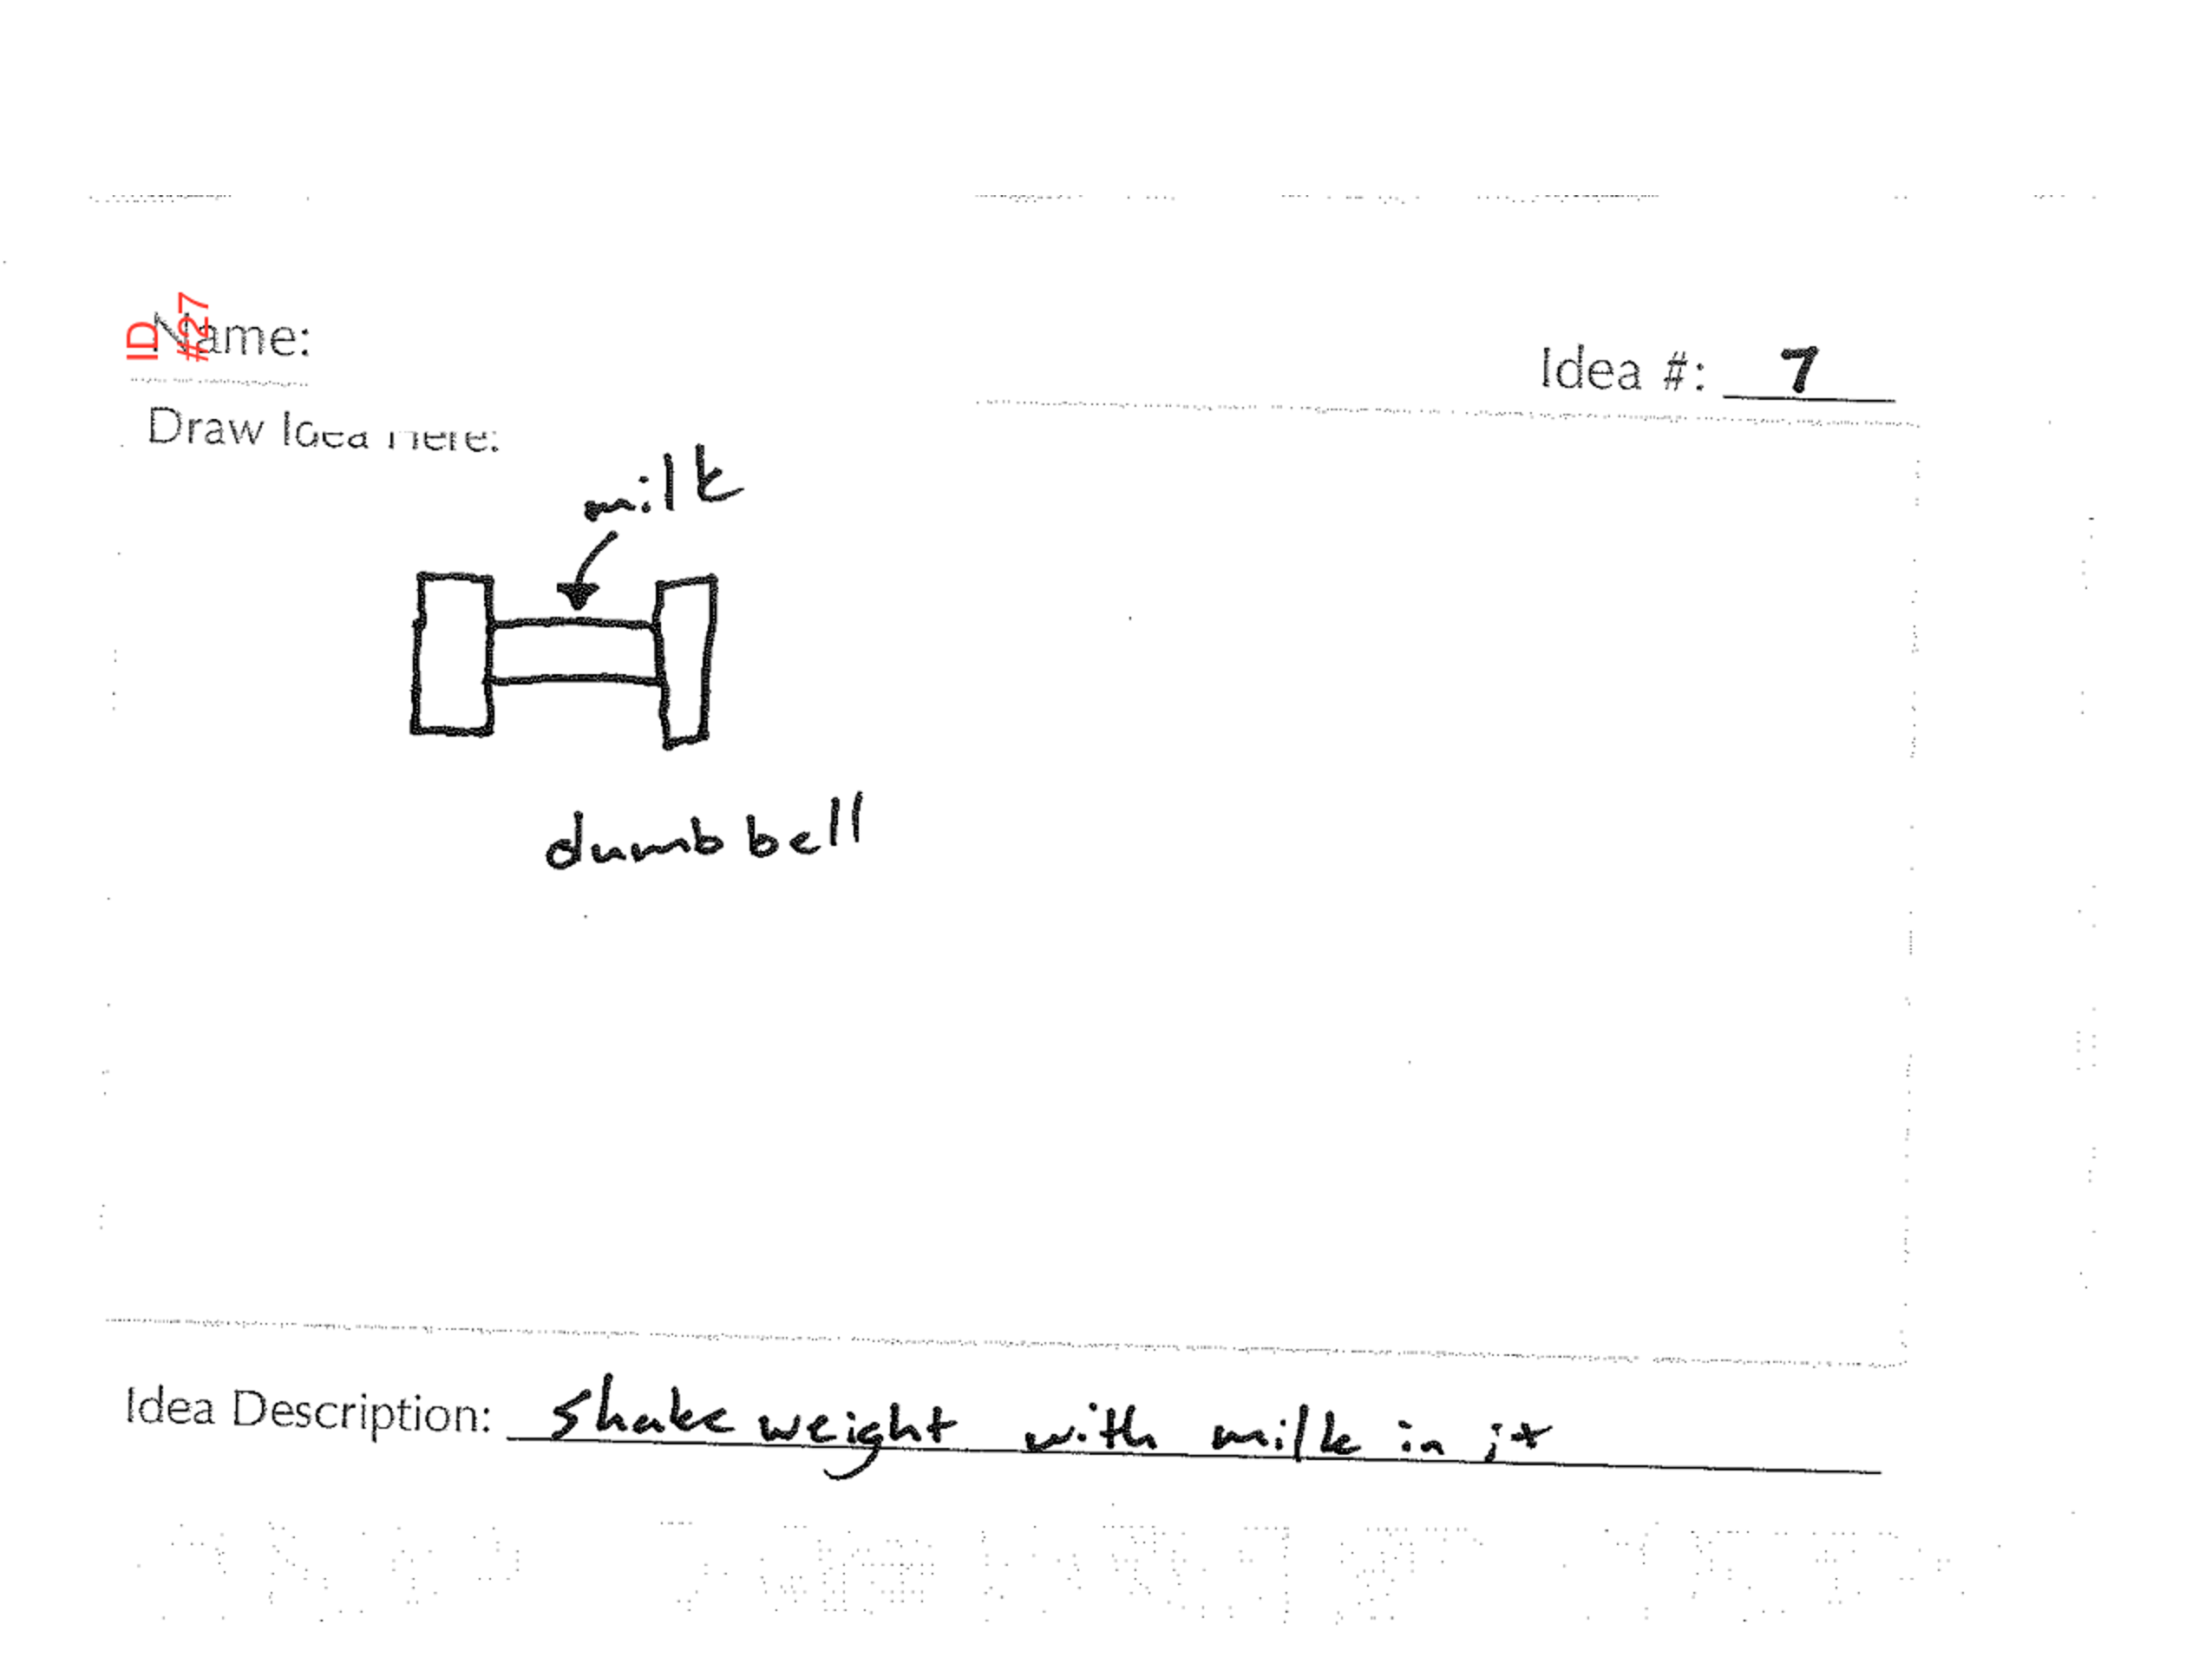 ID
#27
Name:
Idea #: 7
Draw Idea Here:
milk
dumb bell
Idea Description: Shake weight with milk in it